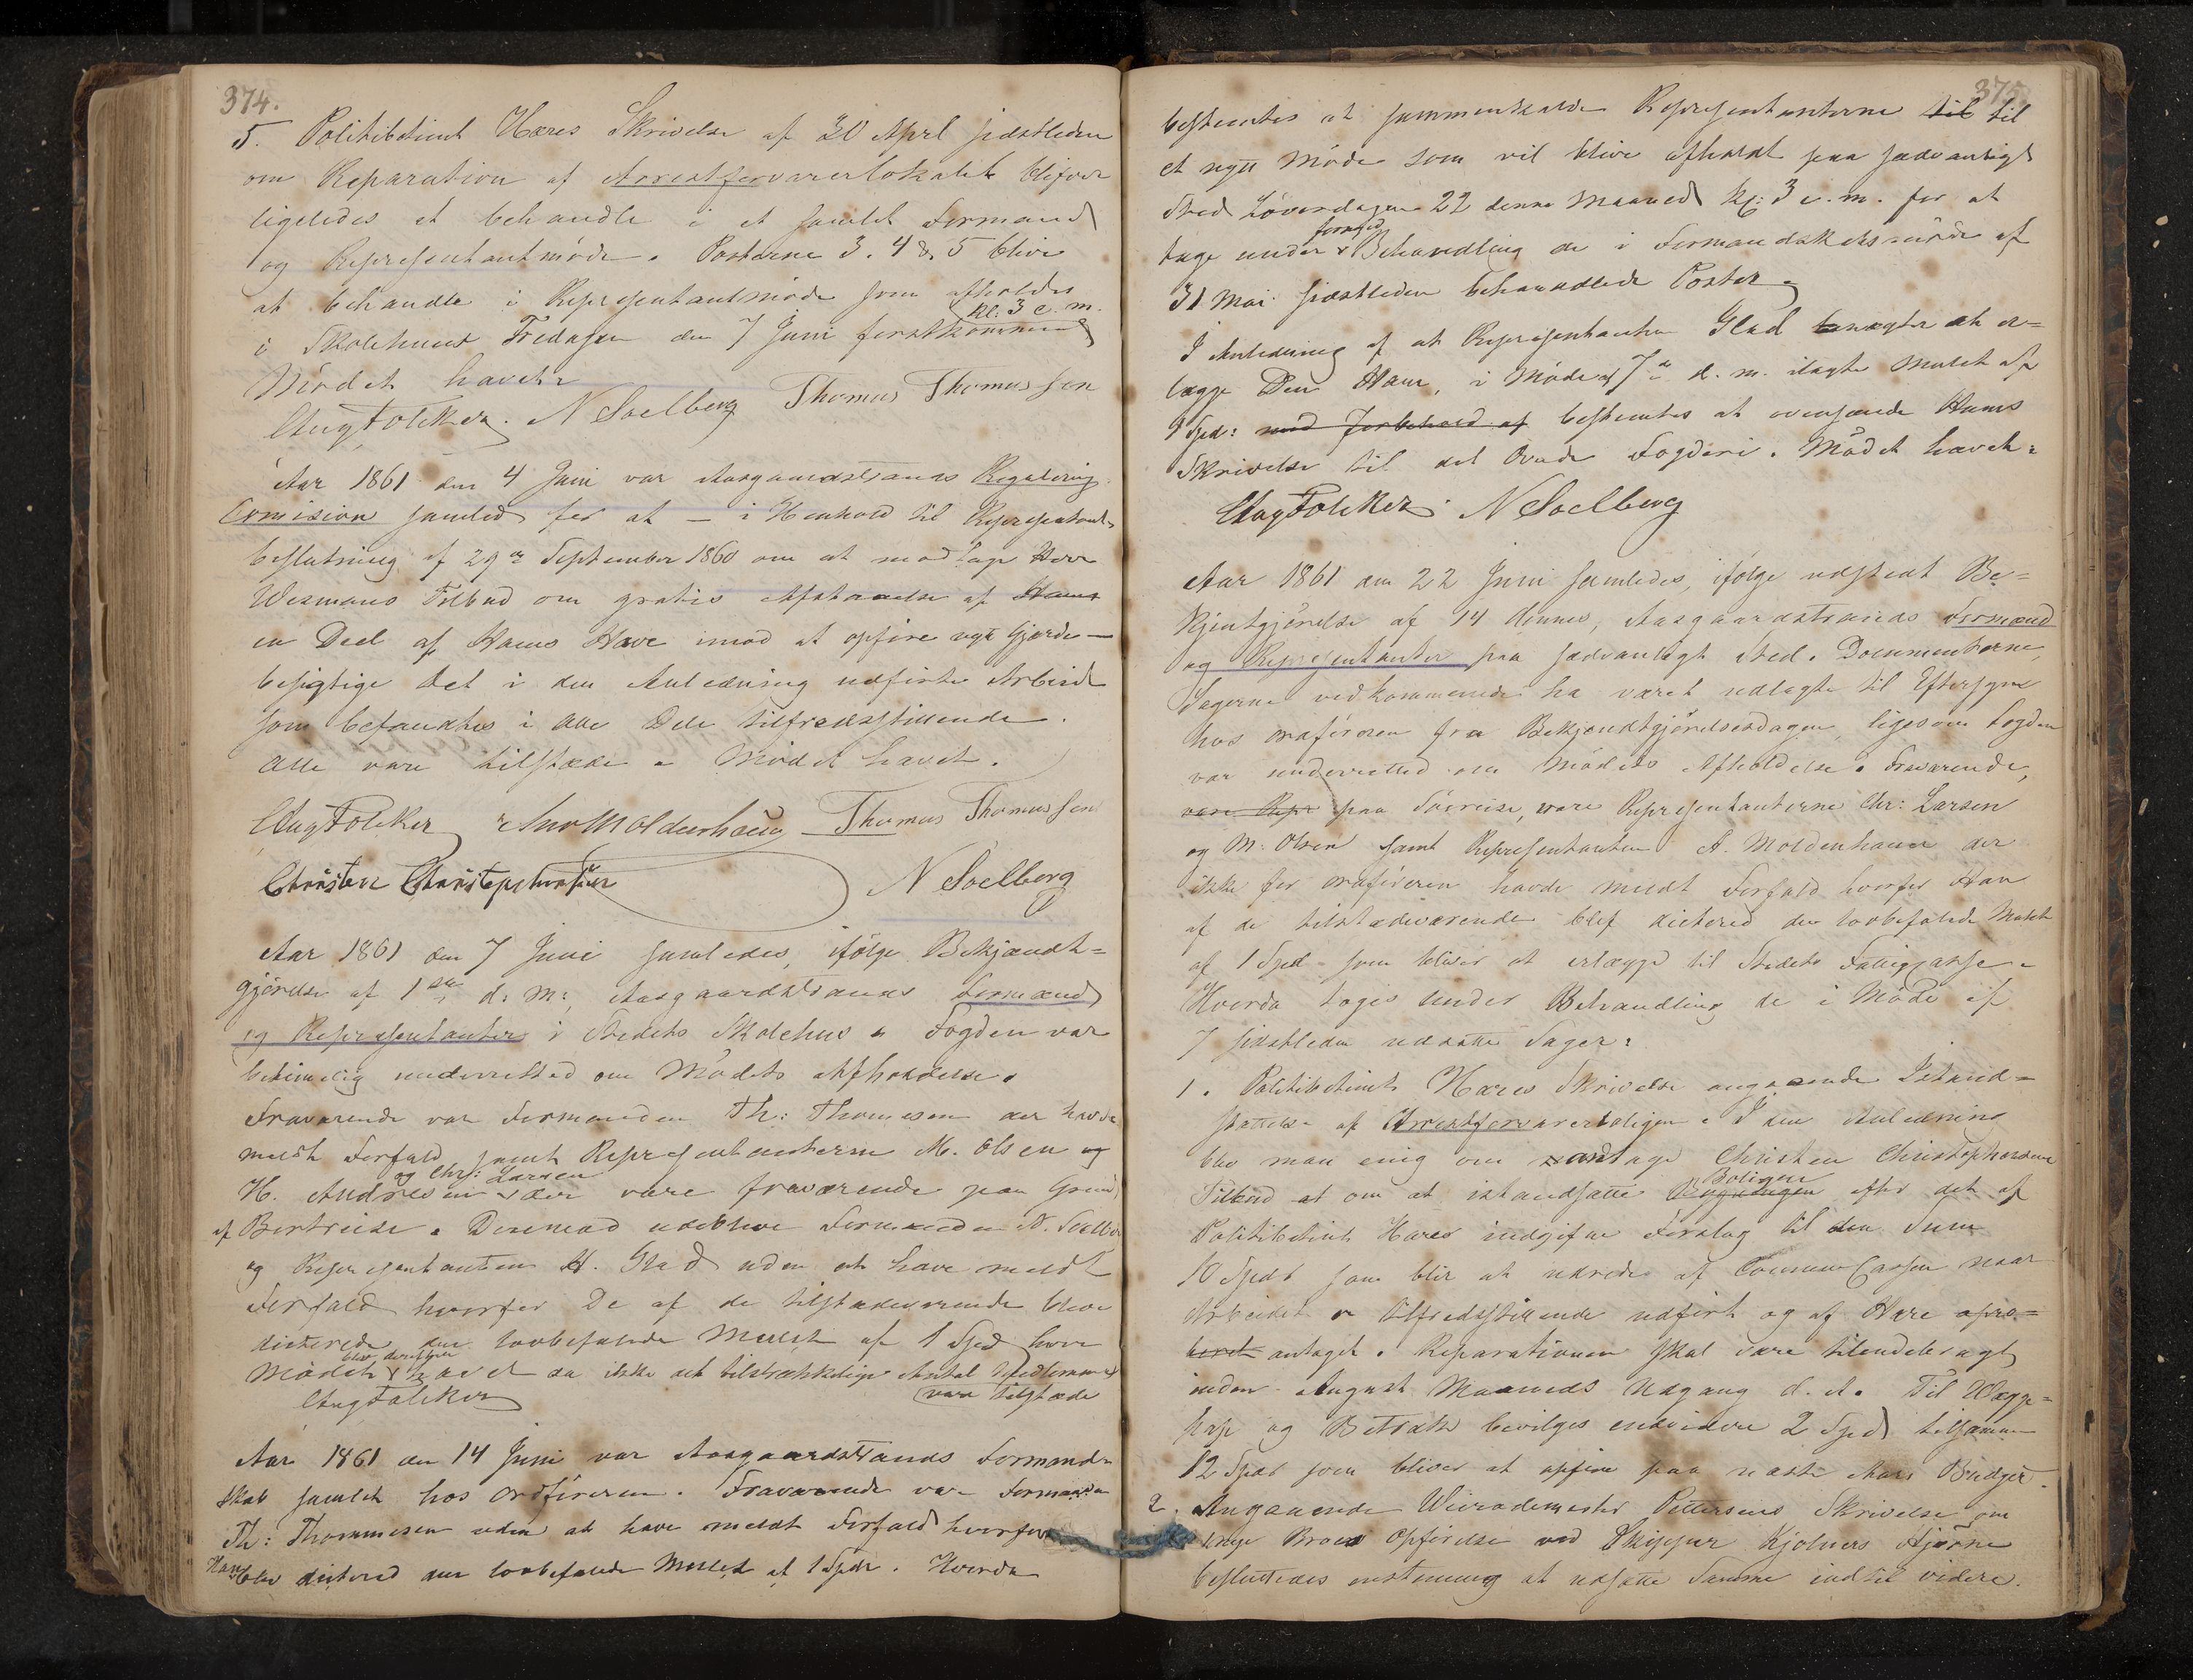 374.
5. Politibetient Hares Skrivelse af 20 April sidstleden
om Reparation af Arrestforvarerlokalet blifver
ligeledes at behandle i et samlet Formand
og Repræsentantmöde. Posterne 3. 4 & 5 blive
at behandle i Repræsentantmöde som afholdes
kl. 3 e. m.
i Skolehuset Fredagen den 7 Juni førstkommende
Mödet hævet
Aug Følcker. N Soelberg Thomas Thomassen
Aar 1861 den 4 Juni var Aasgaardstrands Regulering
Comision samled for at – i Henhold til Repræsentant
beslutning af 29de September 1860 om at modtage Herr
Wesmans Tilbud om gratis Afstaaelse af Hans
en Deel af Hans Have imod at opføre nyt Gjerde –
besigtige det i den Anledning udførte Arbeide
som befandtes i alle Dele tilfredsstillende.
Alle vare tilstæde. Mödet hævet.
Aug Følcker Moldenhauer Thomas Thomassen
Christen Christophersen N Soelberg
Aar 1861 den 7 Juni samledes, ifölge Bekjændt=
gjörelse af 1ste d. M., Aasgaardstrands Formænd
og Repræsentanter i Stedets Skolehus. Fogden var
betimelig underretted om Mödets Afholdelse.
Fraværende var Formanden Th: Thomesen der havde
meldt Forfald samt Repræsentanterne M. Olsen og
og Chr: Larsen
H. Andresen der vare fraværende paa Grund
af Bortreise. Desimod udebleve Formanden N. Soelberg
og Repræsentanten H. Glad uden at have meldt
Forfald hvorfor De af de tilstædeværende bleve
dicterede den lovbefalede Mulct af 1 Spd hver
blev derefter
Mödet hævet da ikke det tilstrækkelige Antal Medlemmer
vare tilstæde
Aug Følcker
Aar 1861 den 14 Juni var Aasgaardstrands Formand=
skab samlet hos Ordföreren. Fraværende var Formanden
Th: Thommesen uden at have meldt Forfald hvorfor
Han blev dictered den lovbefalede Mulct af 1 Spdr. Hvorda
375
bestemtes at sammenkalde Repræsentanterne til til
et nytt Möde som vil blive afholdt paa sædvanligt
Sted Löverdagen 22 denne Maaned kl: 3 e. m. for at
fornyed
tage under Behandling de i Formandskabsmöde af
31 Mai sidstleden behandlede Poster.
I Anledning af at Repræsentanten Glad nægter at er=
lægge Den Ham, i Möde af 7de d. m. ilagte Mulct af
1 Spd: med forbehold af bestemtes at oversende Hans
Skrivelse til det Fogderi. Mödet hævet.
Aug Følcker. N Soelberg
Aar 1861 den 22 Juni samledes, ifölge udstedt Be=
kjentgjörelse af 14 dennes, Aasgaardstrands Formænd
og Repræsentanter paa sædvanligt Sted. Documenterne,
Sagerne vedkommende ha været udlagte til Eftersyn
hos Ordföreren fra Bekjendtgjörelsesdagen, ligesom Fogden
var underretted om Mödets Afholdelse. Fraværende,
vare Repr paa Söreise, vare Repræsentanterne Chr: Larsen
og M. Olsen samt Repræsentanten A. Moldenhauer der
ikke for Ordföreren havde meldt Forfald hvorfor Han
af de tilstædeværende blef dictered den lovbefalede Mulct
af 1 Spd som bliver at erlægge til Stedets Fattigcasse.
Hvorda toges under Behandling de i Möde af
7 sidstleden udsatte Sager:
1. Politibetient Hares Skrivelse angaaende Istand=
sættelse af Arrestforvarerboligen. I den Anledning
blev man enig om modtage Christen Christophersens
Boligen
Tilbud at om at istandsætte Bygningen efter det af
Politibetient Hares indgifne Forslag til den Sum
10 Spdr som blir at udrede af CommuneCassen naar
Arbeidet er tilfredsstillende udfört og af Hare apro=
beret antaget. Reparationen skal være tilendebragt
inden August Maaneds Udgang d. A. Til Vægge=
pap og Betræk bevilges endvidere 2 Spd tilsammen
12 Spdr som bliver at opføre paa næste Aars Budget.
2. Angaaende Veirodemester Pettersens Skrivelse om
nye Broes Opførelse ved Skipper Kjølners Hjörne
besluttedes enstemmig at udsætte Samme indtil videre.